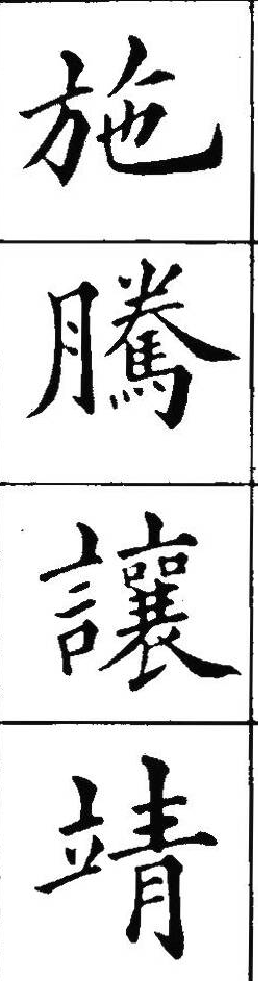 施
騰
讓
靖